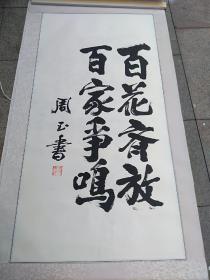 百花齐放
百家争鸣
周玉书